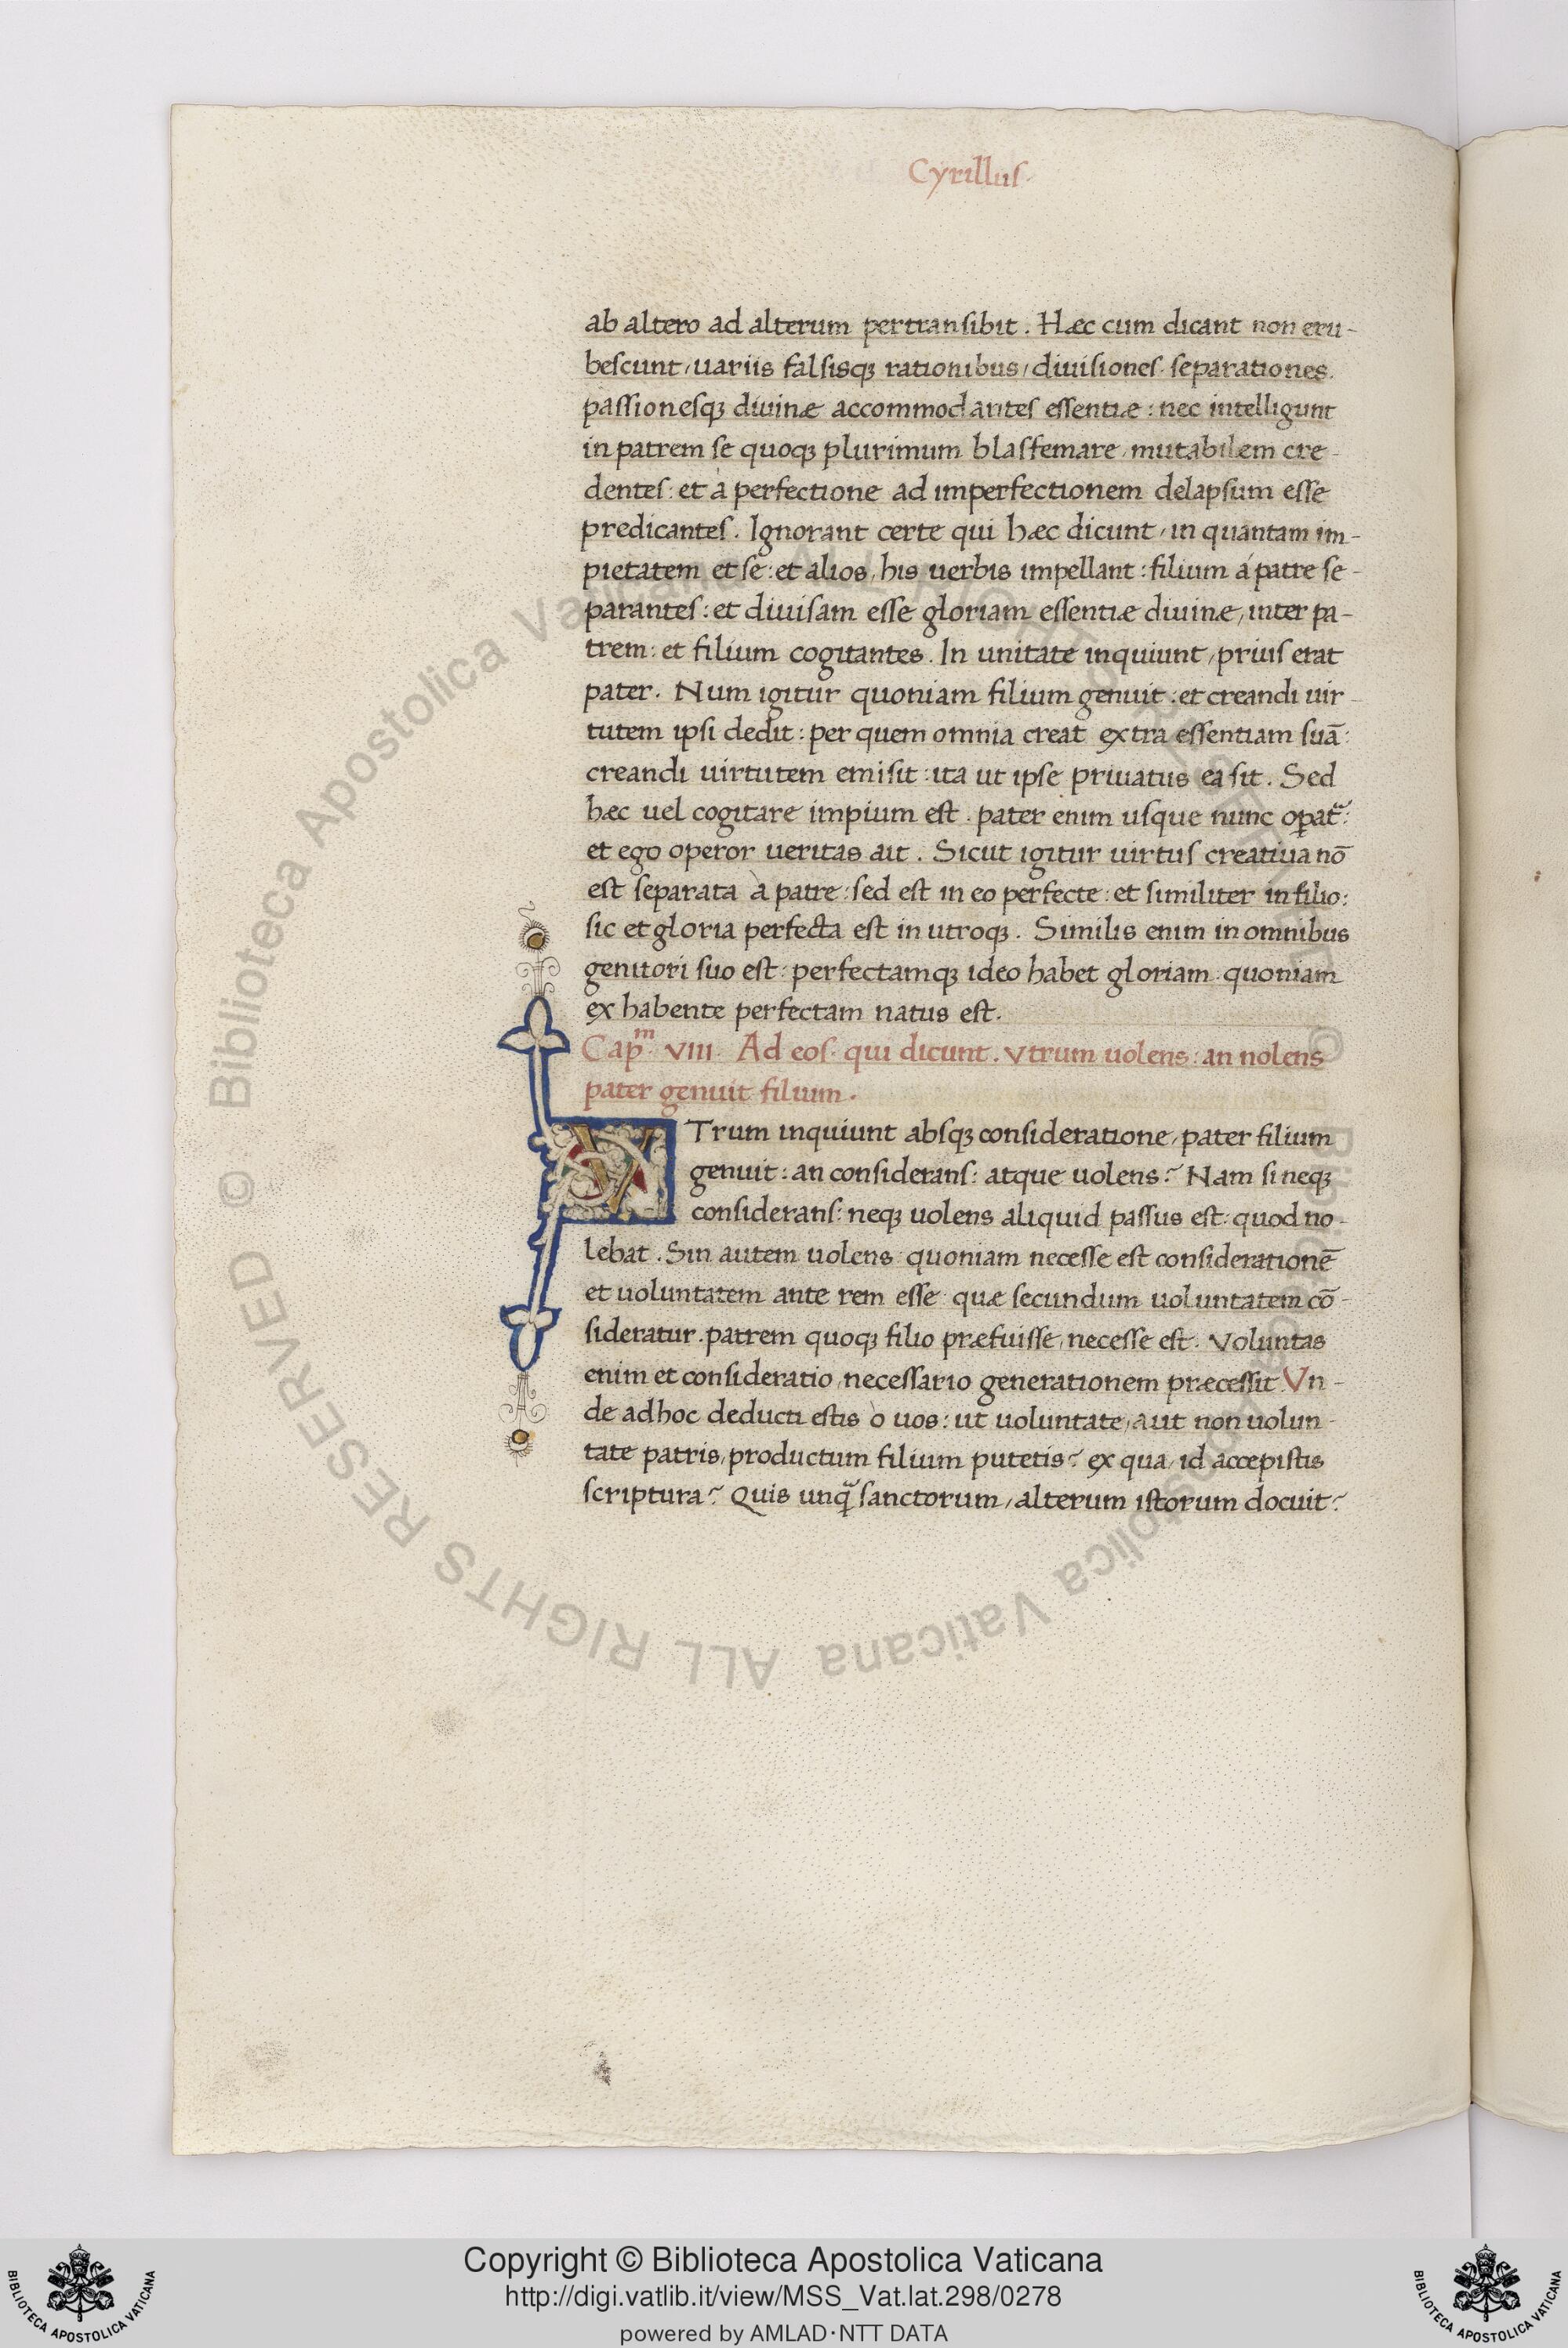 Cyrillus.
ab altero ad alterum pertransibit. Hæc cum dicant non eru-
bescunt, uariis falsisqꝫ rationibus, diuisiones. separationes.
passionesqꝫ diuinæ accommodantes essentiæ: nec intelligunt
in patrem se quoqꝫ plurimum blasfemare, mutabilem cre-
dentes: et à perfectione ad imperfectionem delapsum esse
predicantes. Ignorant certe qui hæc dicunt, in quantam im-
pietatem et se: et alios, his uerbis impellant: filium á patre se-
parantes: et diuisam esse gloriam essentiæ diuinæ, inter pa-
trem: et filium cogitantes. In unitate inquiunt, prius erat
pater. Num igitur quoniam filium genuit: et creandi uir-
tutem ipsi dedit: per quem omnia creat extra essentiam suā:
creandi uirtutem emisit: ita ut ipse priuatus ea sit. Sed
hæc uel cogitare impium est. pater enim usque nunc oꝑat᷑:
et ego operor ueritas ait. Sicut igitur uirtus creatiua nō
est separata à patre: sed est in eo perfecte: et similiter in filio:
sic et gloria perfecta est in utroqꝫ. Similis enim in omnibus
genitori suo est: perfectamqꝫ ideo habet gloriam: quoniam
ex habente perfectam natus est.
Capᵐ. VIII. Ad eos. qui dicunt. Vtrum uolens: an nolens
pater genuit filium.
VTrum inquiunt absqꝫ consideratione, pater filium
genuit: an considerans: atque uolens? Nam si neqꝫ
considerans: neqꝫ uolens aliquid passus est: quod no-
lebat. Sin autem uolens: quoniam necesse est consideratione̅
et uoluntatem ante rem esse: quæ secundum uoluntatem cō-
sideratur. patrem quoqꝫ filio præfuisse, necesse est. Voluntas
enim et consideratio, necessario generationem præcessit. Vn-
de ad hoc deducti estis ò uos: ut uoluntate, aut non uolun-
tate patris, productum filium putetis? ex qua, id accepistis
scriptura? Quis unqᷓ sanctorum, alterum istorum docuit?
© Biblioteca Apostolica Vaticana ALL RIGHTS RESERVED
© Biblioteca Apostolica Vaticana ALL RIGHTS RESERVED
Copyright © Biblioteca Apostolica Vaticana
http://digi.vatlib.it/view/MSS_Vat.lat.298/0278
powered by AMLAD·NTT DATA
BIBLIOTECA APOSTOLICA VATICANA
BIBLIOTECA APOSTOLICA VATICANA